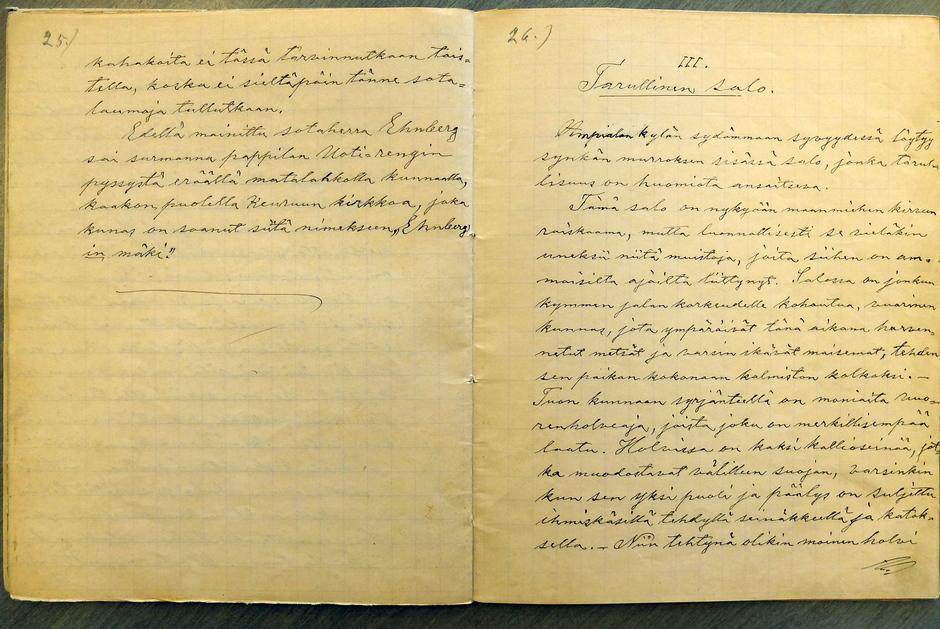 25.)
kahakoita ei tässä tarvinnutkaan tais=
tella, koska ei sieltäpäin tänne sota=
laumoja tullutkaan.
Edellä mainittu sotaherra Ehnberg
sai surmansa pappilan Uoti=rengin
pyssystä eräällä matalahkolla kunnaalla,
kaakon puolella Keuruun kirkkoa, joka
kunnas on saanut siitä nimekseen „Ehnberg
in mäki".
26.)
III.
Tarullinen salo.
Ampialan kylän sydänmaan syvyydessä löytyy
synkän murroksen sisässä salo, jonka tarul=
lisuus on huomiota ansaitseva.
Tämä salo on nykyään maanmiehen kirveen
raiskaama, mutta luonnollisesti se vieläkin
uneksii niitä muistoja, joita siihen on am=
moisilta ajoilta liittynyt. Salossa on jonkun
kymmen jalan korkeudelle kohoutua, vuorinen
kunnas, jota ympäröivät tänä aikana harven=
netut metsät ja varsin ikävät maisemat, tehden
sen paikan kokonaan kalmiston kolkoksi. —
Tuon kunnaan syrjänteellä on moniaita vuo=
renholveaja, joista joku on merkillisempää
laatua. Holvissa on kaksi kallioseinää, jot
ka muodostavat välilleen suojan, varsinkin
kun sen yksi puoli ja päälys on suljettu
ihmiskäsillä tehdyllä seinäkkeellä ja katok=
sella. — Niin tehtynä olikin moinen holvi